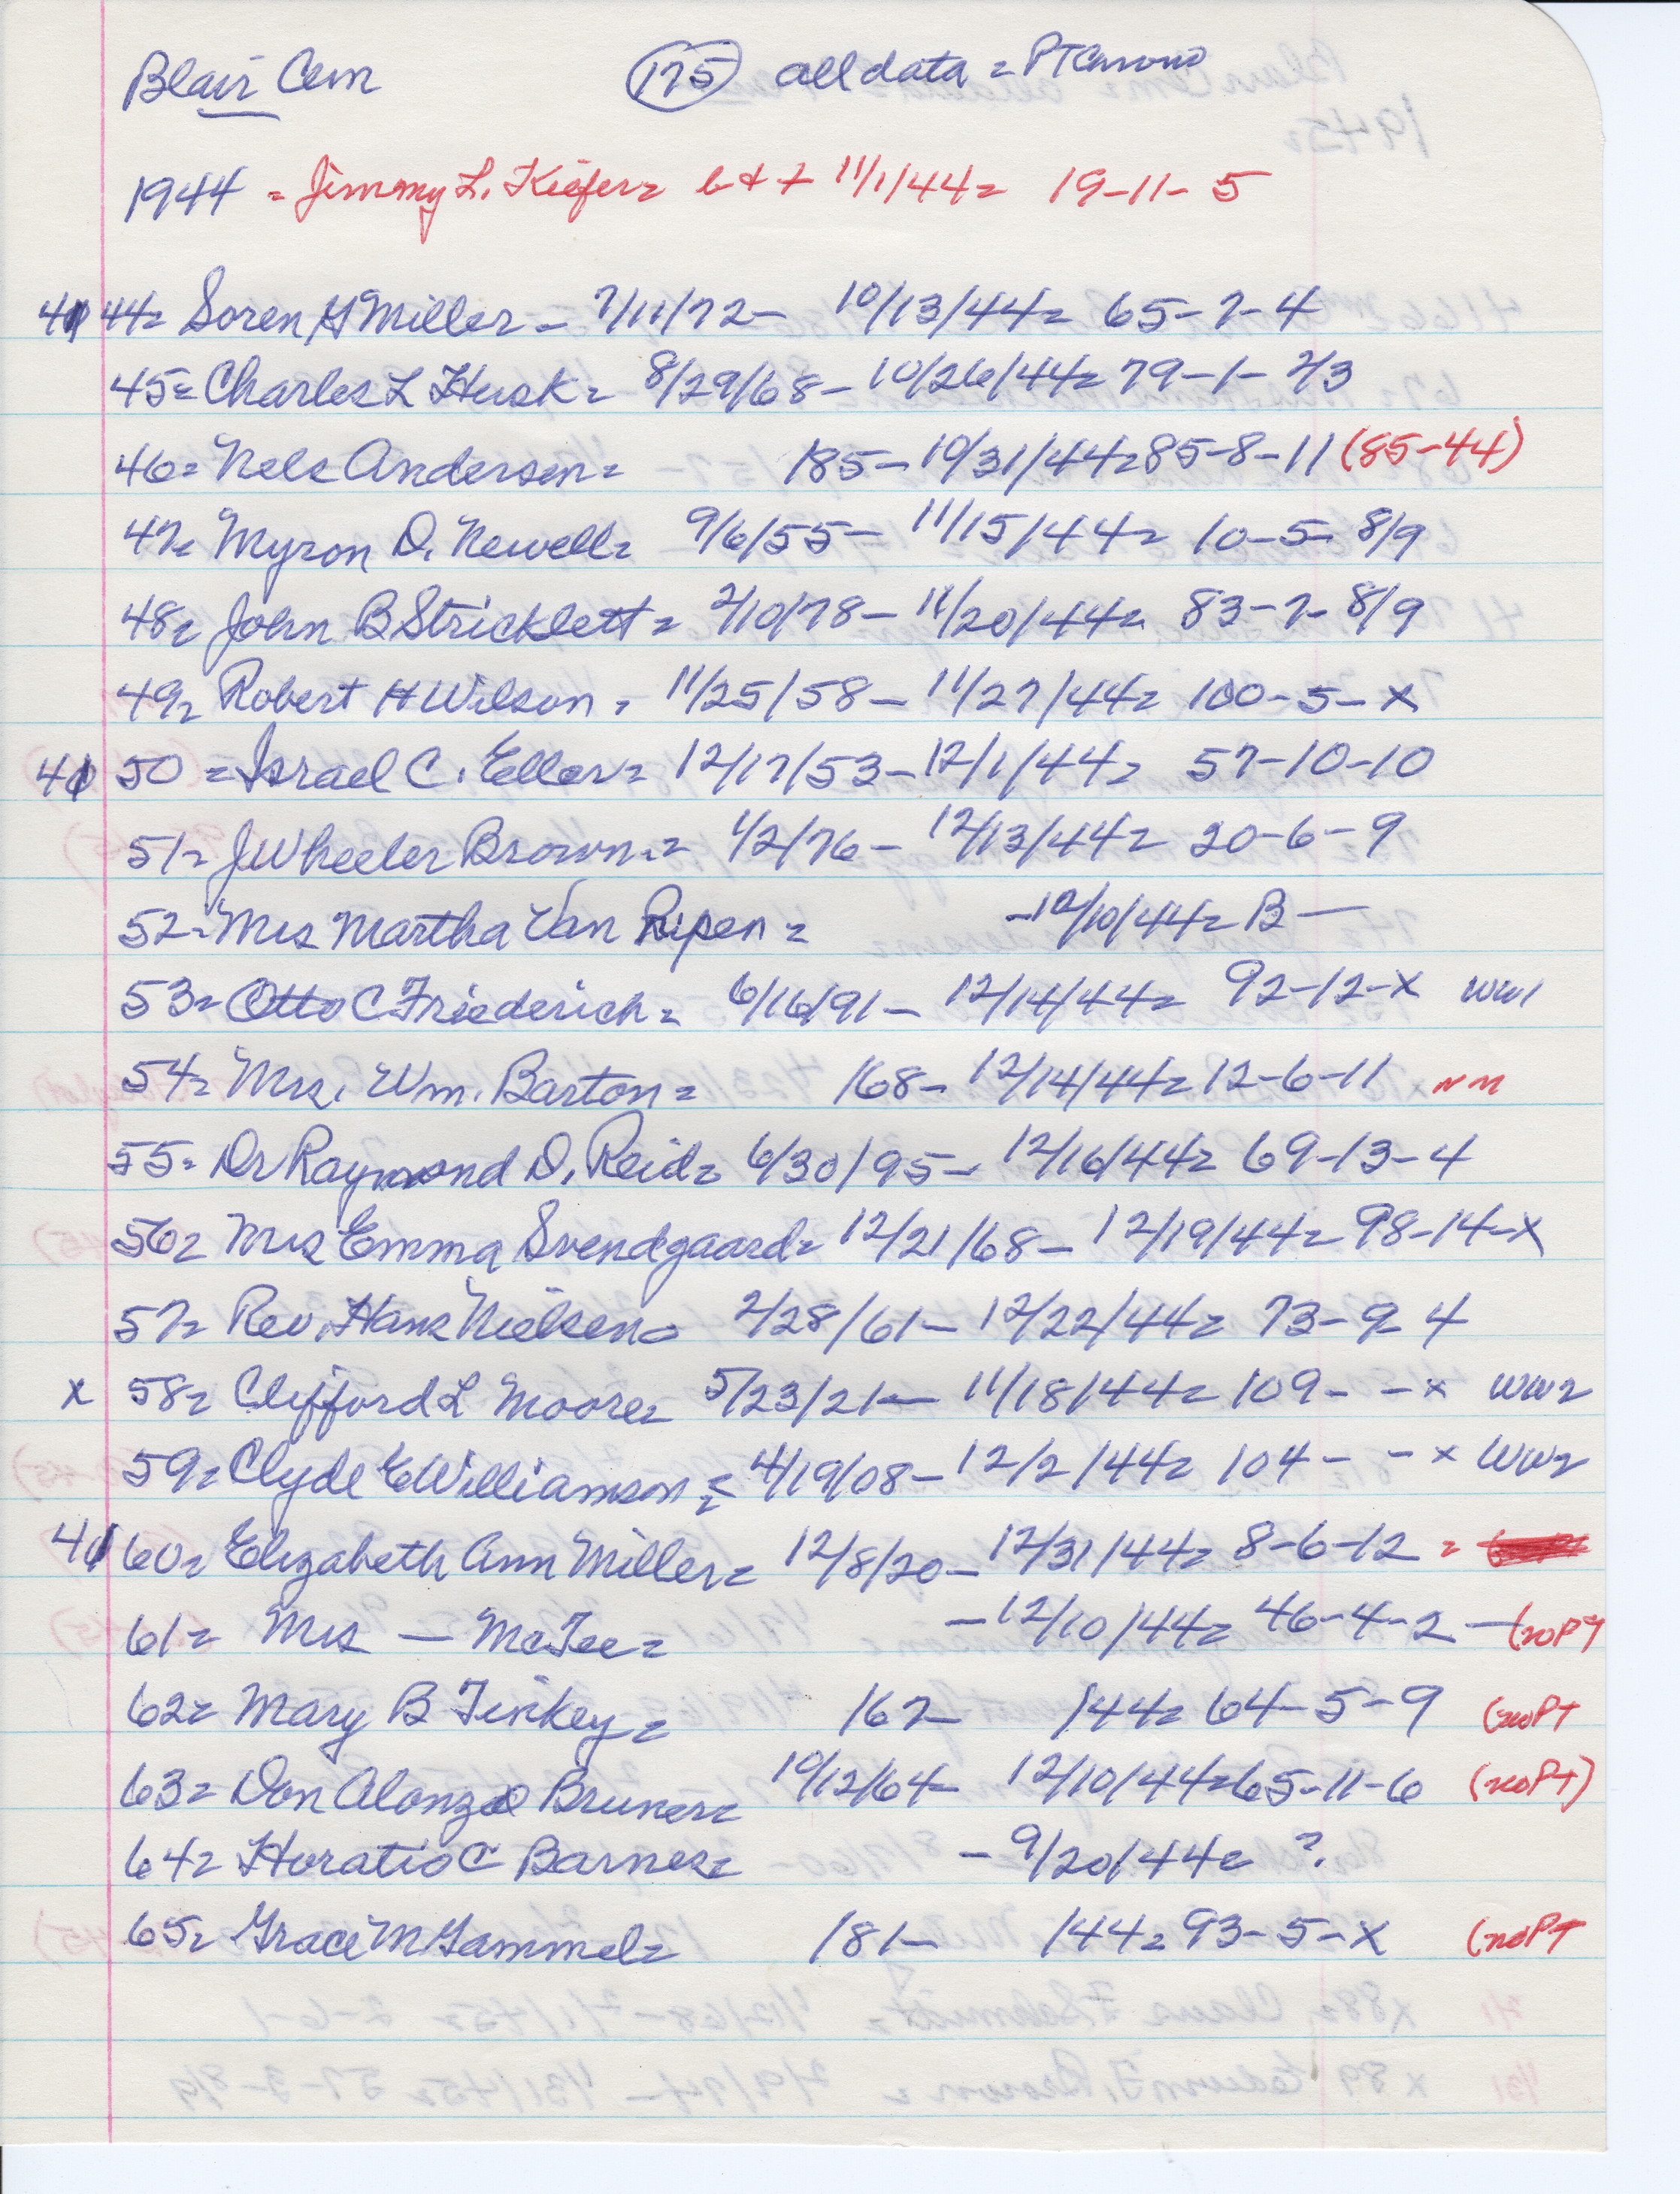 Blair Cem (175) all data =
1944 = Jimmy L. Kiefer = b + + 11/1/44 = 19-11-5
41 44 = Soren H Miller - 7/11/72 - 10/13/44 = 65-7-4
45 = Charles L Husk = 8/29/68 - 10/26/44 = 79-1-2/3
46 = Nels Andersen = 185- 10/31/44 = 85-8-11 (85-44)
47 = Myron D. Newell = 9/6/55 - 11/15/44 = 10-5-8/9
48 = John B Stricklett = 2/10/78 - 11/20/44 = 83-7-8/9
49 = Robert H Wilson = 11/25/58 - 11/27/44 = 100-5-x
41 50 = Israel C. Eller = 12/17/53 - 12/1/44 = 57-10-10
51 = J Wheeler Brown = 1/2/76 - 12/13/44 = 20-6-9
52 = Mrs Martha Van Ripen = - 12/10/44 = B —
53 = Otto C Friederich = 6/16/91 - 12/14/44 = 92-12-x WW1
54 = Mrs. Wm. Barton = 168- 12/14/44 = 12-6-11 nm
55 = Dr Raymond D. Reid = 6/30/95 - 12/16/44 = 69-13-4
56 = Mrs Emma Svendgaard = 12/21/68 - 12/19/44 = 98-14-x
57 = Rev. Hans Nielsen = 2/28/61 - 12/22/44 = 73-9-4
x 58 = Clifford L Moore = 5/23/21 - 11/18/44 = 109- -x WW2
59 = Clyde E Williamson = 4/19/08 - 12/2/44 = 104- -x WW2
41 60 = Elizabeth Ann Miller = 12/8/20 - 12/31/44 = 8-6-12 =
61 = Mrs — McFee = - 12/10/44 = 46-4-2 — (noPT
62 = Mary B Finkey = 167- /44 = 64-5-9 (noPT
63 = Don Alonzo Bruner = 10/12/64 - 12/10/44 = 65-11-6 (noPT)
64 = Horatio C Barnes = - 9/20/44 = ?
65 = Grace M Gammel = 181- /44 = 93-5-x (noPT